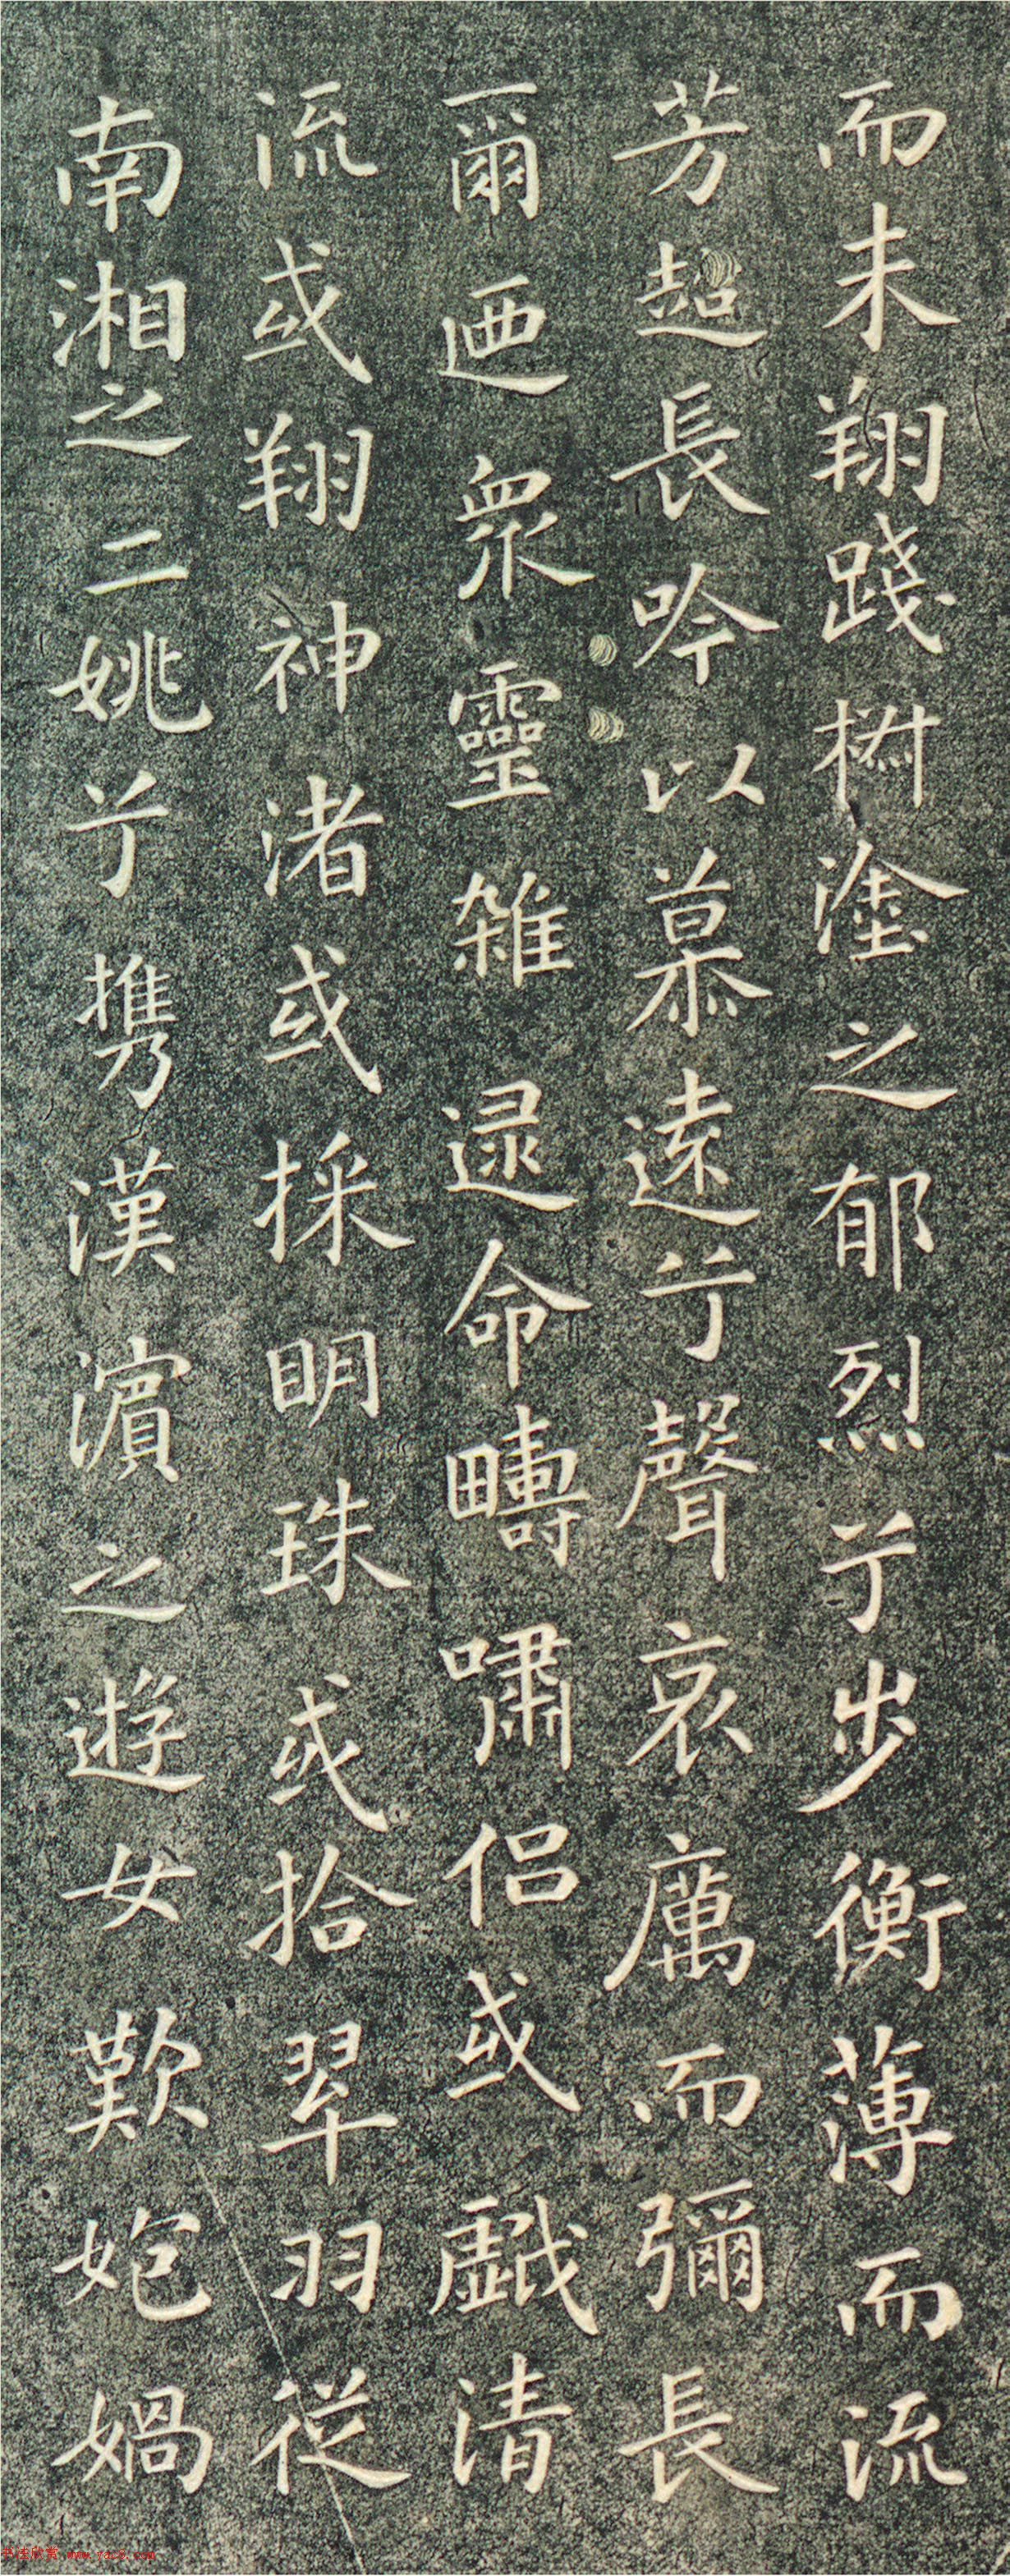 而未翔踐椒塗之郁烈兮步衡薄而流
芳超長吟以慕遠兮聲哀厲而彌長
爾迺衆靈雜遝命疇嘯侶或戲清
流或翔神渚或採明珠或拾翠羽從
南湘之二姚兮攜漢濱之遊女歎匏媧